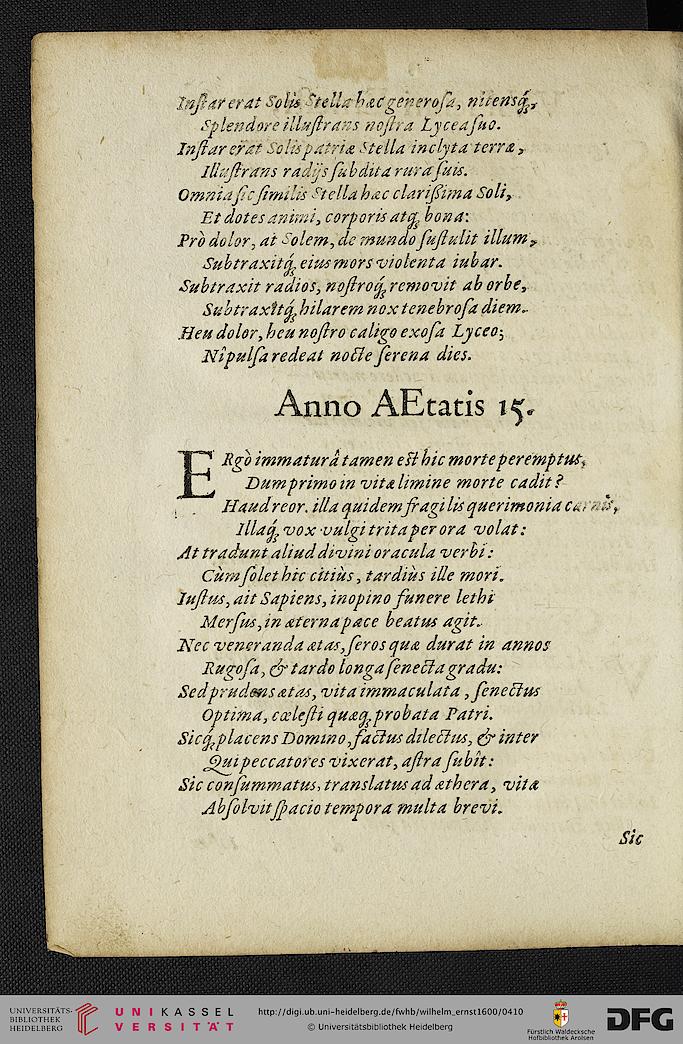 Inſtar erat Solis Stella hæc generoſa, nitensq́;,
Splendore illuſtrans noſtra Lycea ſuo.
Inſtar erat Solis patriæ Stella inclyta terræ,
Illuſtrans radijs ſubdita rura ſuis.
Omnia ſic ſimilis Stella hæc clarißima Soli,
Et dotes animi, corporis atq́; bona:
Prò dolor, at Solem, de mundo ſuſtulit illum,
Subtraxitq́; eius mors violenta iubar.
Subtraxit radios, noſtroq́; removit ab orbe,
Subtraxitq́; hilarem nox tenebroſa diem.
Heu dolor, heu noſtro caligo exoſa Lyceo;
Nî pulſa redeat nocte ſerena dies.
Anno AEtatis 15.
ERgò immaturâ tamen eſt hic morte peremptus,
Dum primo in vitæ limine morte cadit?
Haud reor. illa quidem fragilis querimonia carnis,
Illaq́; vox vulgi trita per ora volat:
At tradunt aliud divini oracula verbi:
Cùm ſolet hic citiùs, tardiùs ille mori.
Iuſtus, ait Sapiens, inopino funere lethi
Merſus, in æterna pace beatus agit.
Nec veneranda ætas, ſeros quæ durat in annos
Rugoſa, & tardo longa ſenecta gradu:
Sed prudens ætas, vita immaculata, ſenectus
Optima, cœleſti quæq́; probata Patri.
Sicq́; placens Domino, factus dilectus, & inter
Qui peccatores vixerat, aſtra ſubît:
Sic conſummatus, translatus ad æthera, vitæ
Abſolvit ſpacio tempora multa brevi.
Sic
UNIVERSITÄTS-
BIBLIOTHEK
HEIDELBERG
UNIKASSEL
VERSITÄT
http://digi.ub.uni-heidelberg.de/fwhb/wilhelm_ernst1600/0410
© Universitätsbibliothek Heidelberg
Fürstlich Waldecksche
Hofbibliothek Arolsen
DFG